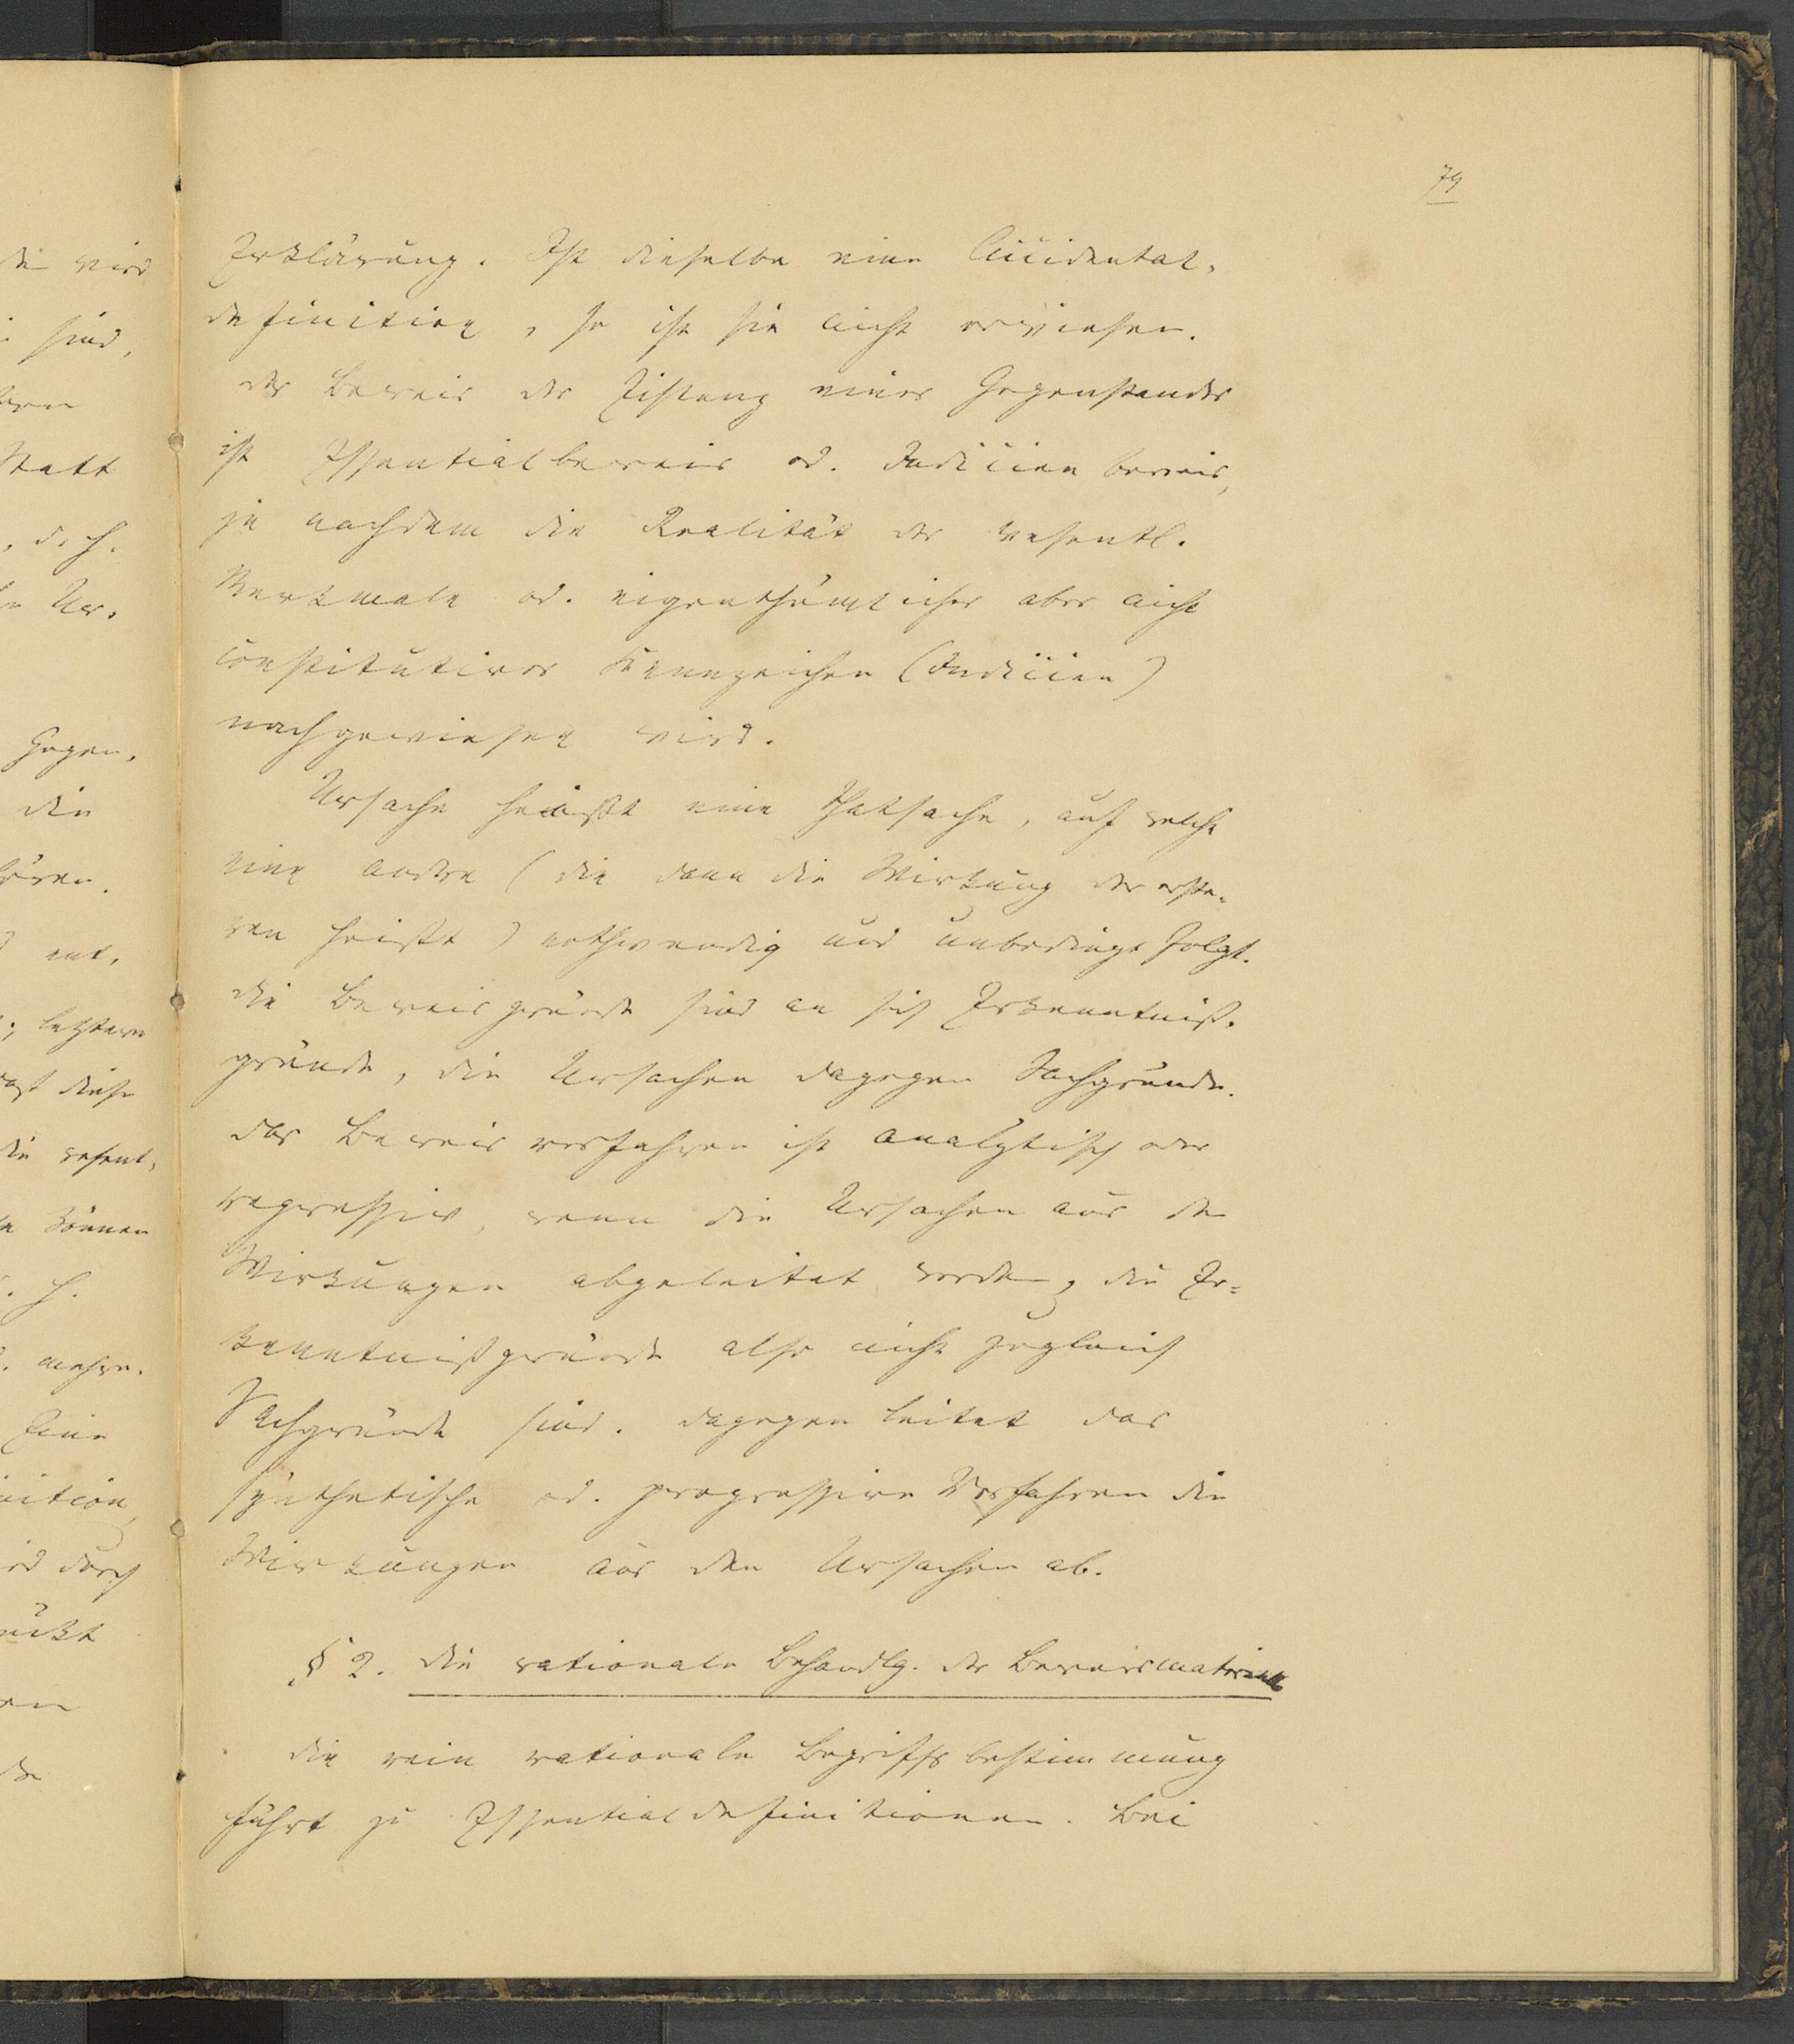 79
Erklärung. Ist dieselbe eine Accidental-
definition, so ist sie nicht erwiesen.
der Beweis der Existenz eines Gegenstandes
ist Essentialbeweis od. Indicienbeweis,
je nachdem die Realität der wesentl.
Merkmale od. eigenthümlicher aber nicht
constitutiver Kennzeichen (Indicien)
nachgewiesen wird.
Ursache heisst eine Thatsache, auf welche
eine andre (die dann die Wirkung der erste-
ren heißt) nothwendig und unbedingt folgt.
die Beweisgründe sind an sich Erkenntniß-
gründe, die Ursachen dagegen Sachgründe.
das Beweisverfahren ist analytisch oder
regressiv, wenn die Ursachen aus den
Wirkungen abgeleitet werden, die Er-
kenntnißgründe also nicht zugleich
Sachgründe sind. dagegen leitet das
synthetische od. progressive Verfahren die
Wirkungen aus den Ursachen ab.
§ 2. die rationale Behandlg. der Beweismaterialien
die rein rationale Begriffsbestimmung
führt zu Essentialdefinitionen. Bei